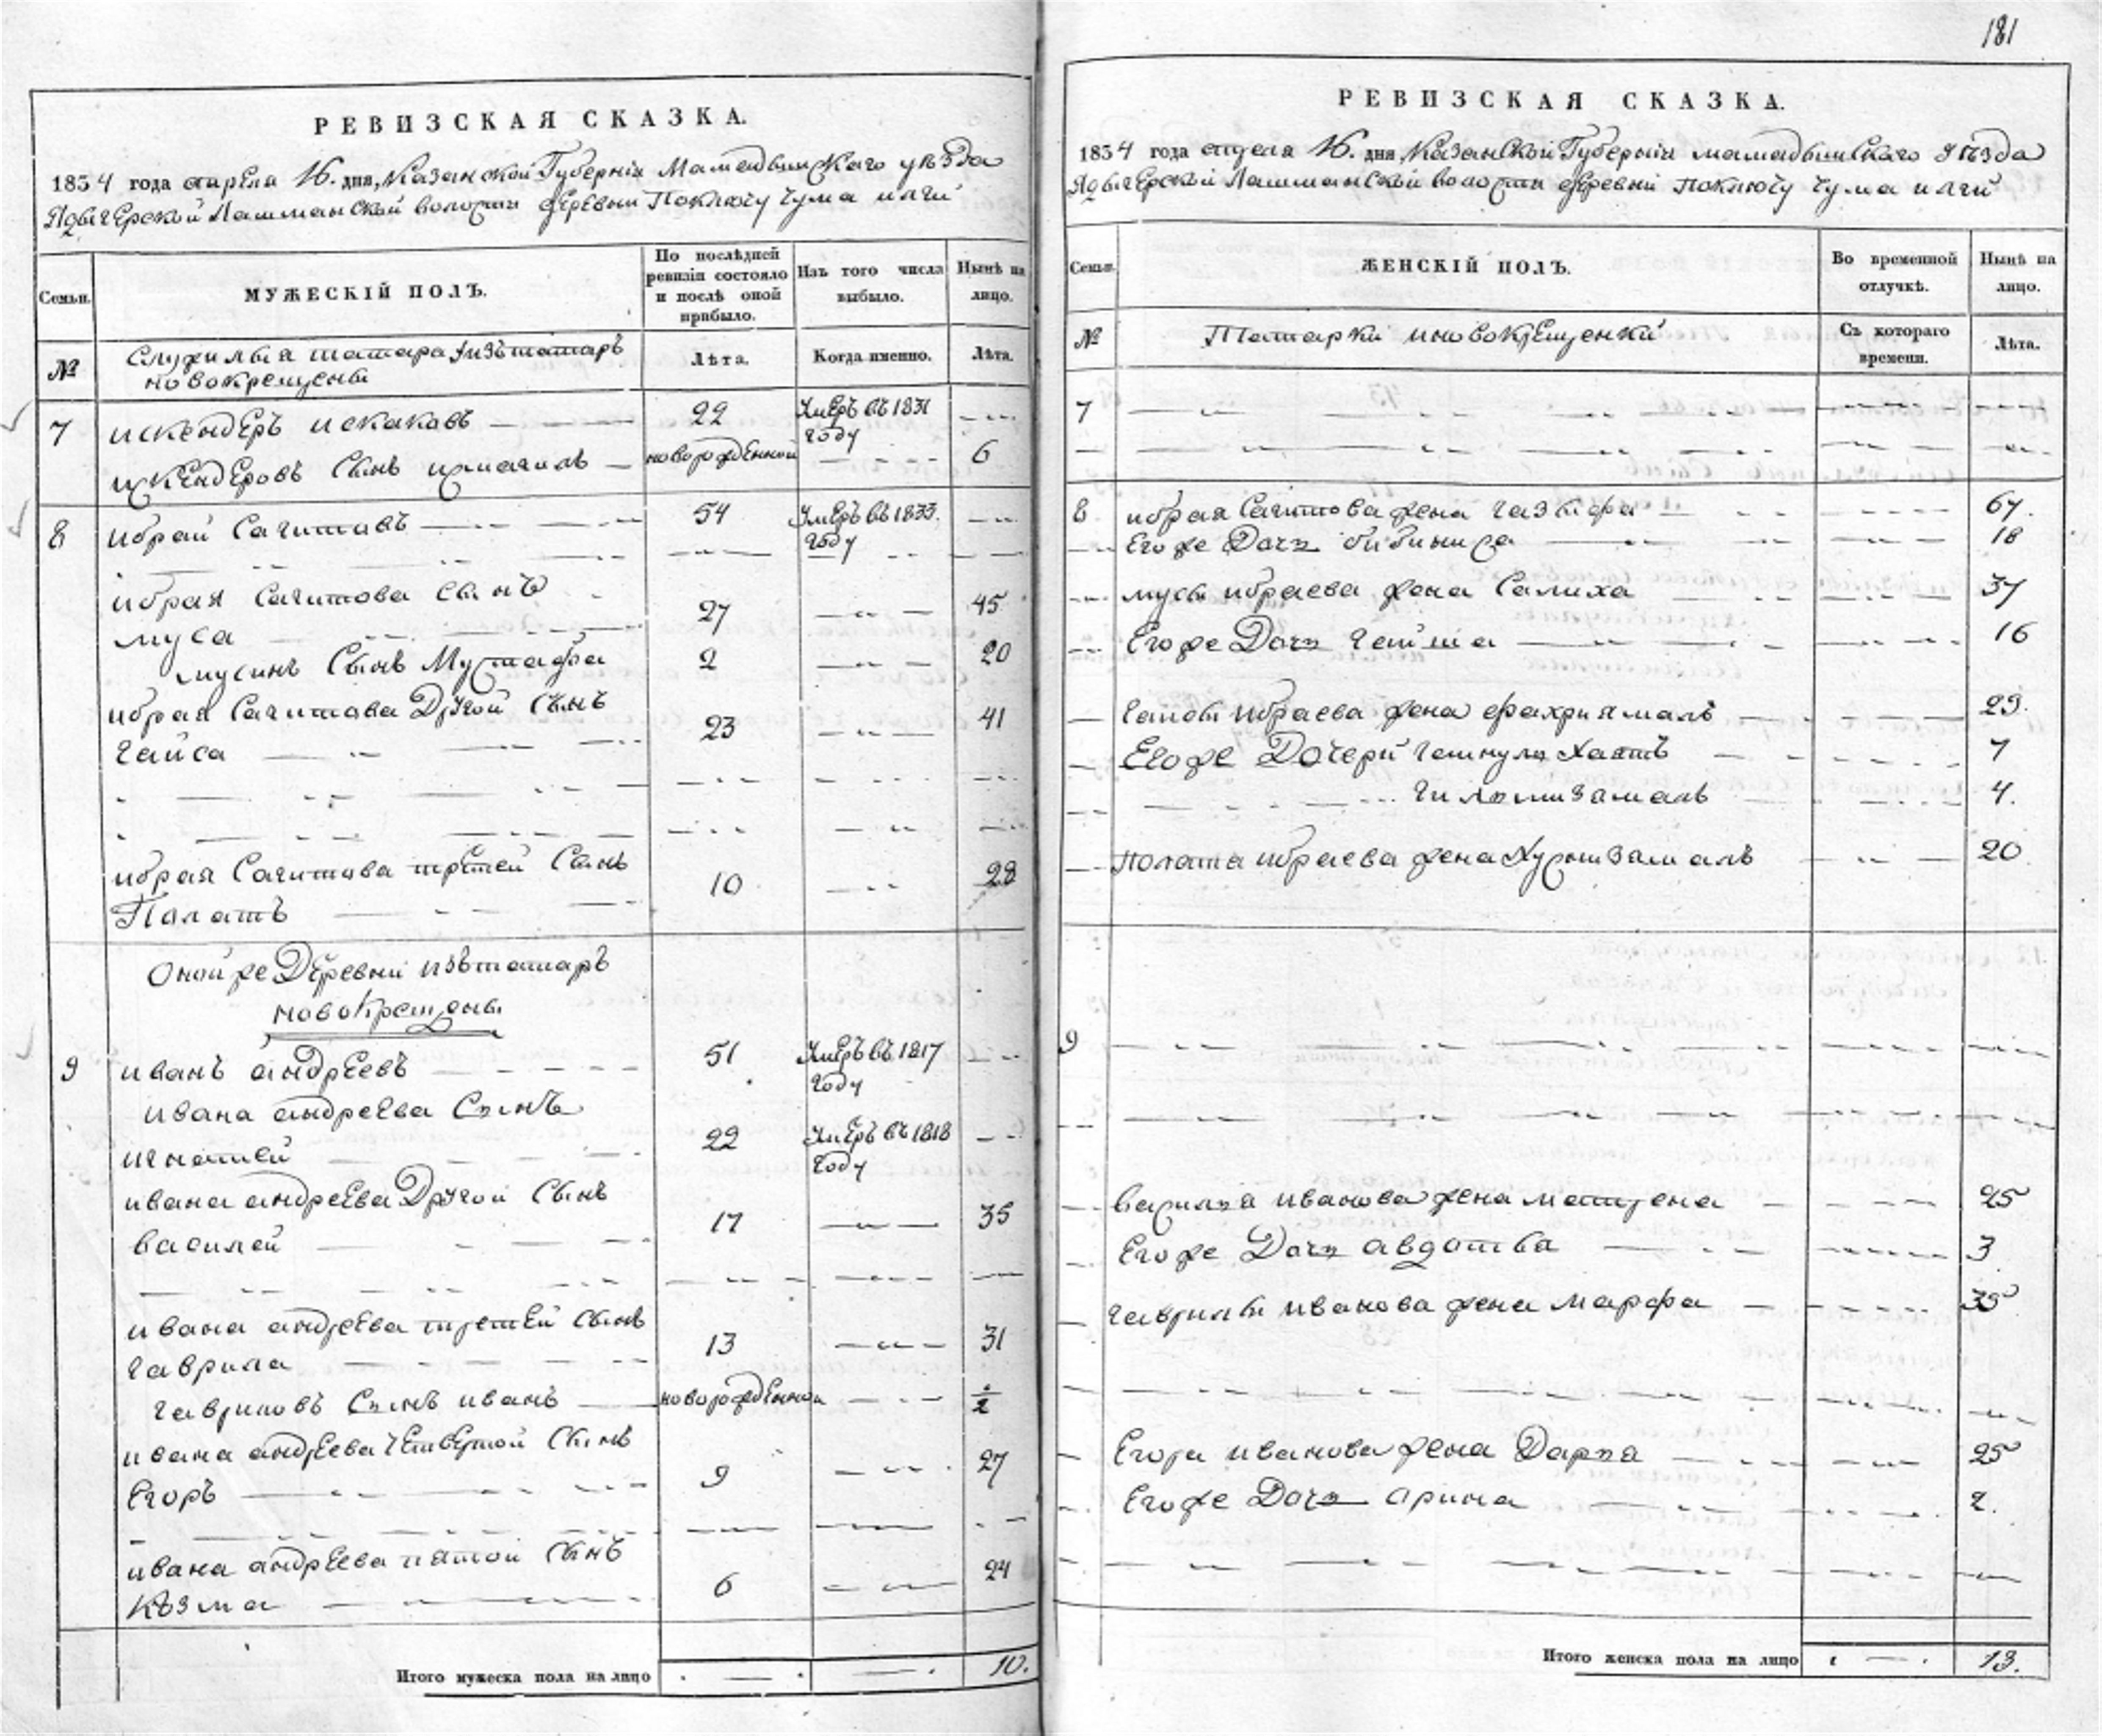 181
РЕВИЗСКАЯ СКАЗКА.
1834 года апреля 16. дня, Казанской Губернiи Мамадышскаго уѣзда
Лашманской волости деревни Поключу Чума илги
Семьи.
МУЖЕСКIЙ ПОЛЪ.
По послѣдней ревизiи состояло и послѣ оной прибыло.
Изъ того числа выбыло.
Нынѣ на лицо.
№
Служилыя татара изъ татаръ
новокрещены
Лѣта.
Когда именно.
Лѣта.
7 искендеръ искаковъ 22 Умеръ въ 1831
году
искендеровъ Сынъ исмагилъ новорожденной 6
8 ибрай Сагитовъ 54 Умеръ въ 1833.
году
ибрая Сагитова сынъ
муса 27 45
мусинъ Сынъ Мустафа 2 20
ибрая Сагитова Другой Сынъ
гайса 23 41
ибрая Сагитова третей Сынъ
Палатъ 10 28
Оной же Деревни изъ татаръ
новокрещены
9 иванъ андреевъ 51 Умеръ въ 1817
году
ивана андреева Сынъ
игнатей 22 Умеръ въ 1818
году
ивана андреева Другой Сынъ
василей 17 35
ивана андреева третей Сынъ
гаврила 13 31
гавриловъ Сынъ иванъ новорожденной
ивана андреева четвертой Сынъ
Егоръ 9 27
ивана андреева пятой Сынъ
Кѣзма 6 24
Итого мужеска пола на лицо 10.
РЕВИЗСКАЯ СКАЗКА.
1834 года апреля 16. дня, Казанской Губернiи мамадышскаго уѣзда
Лашманской волости деревни Поключу Чума илги
Семьи.
ЖЕНСКIЙ ПОЛЪ.
Во временной отлучкѣ.
Нынѣ на лицо.
№
Татарки и новокрещенки
Съ котораго времени.
Лѣта.
7
8 ибрая Сагитова жена 67.
Егоже Дочь бибиниса 18
мусы ибраева жена Салиха 37
Егоже Дочь гайша 16
гайсы ибраева жена фахриямалъ 29.
Егоже Дочери 7
4.
Полата ибраева жена Хуснизамалъ 20
9
василья иванова жена матрена 25
Егоже Дочь авдотья 3
гаврилы иванова жена марфа 35
Егора иванова жена Дарья 25
Егоже Дочь арина 2.
Итого женска пола на лицо 13.